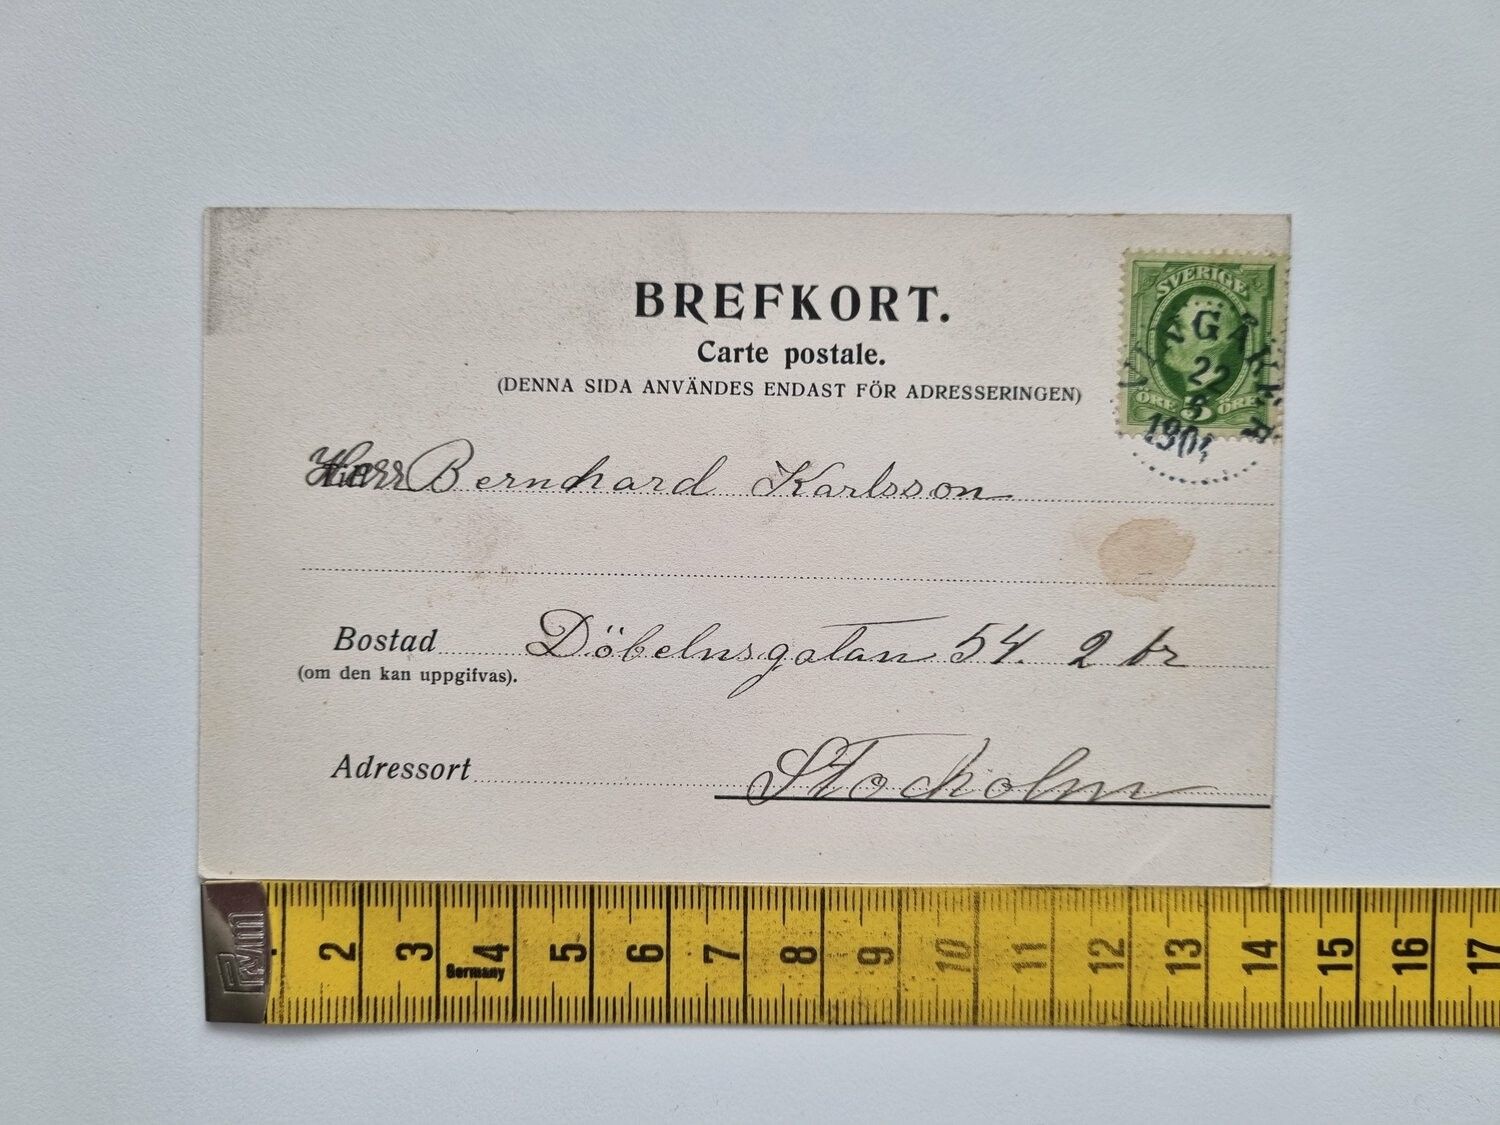 BREFKORT.
Carte postale.
(DENNA SIDA ANVÄNDES ENDAST FÖR ADRESSERINGEN)
SVERIGE
VINGÅKER
22
8
1904
ÖRE 5 ÖRE
Till
Herr Bernhard Karlsson
Bostad Döbelnsgatan 54. 2 tr
(om den kan uppgifvas).
Adressort Stockholm
Prym
2 3 4 5 6 7 8 9 10 11 12 13 14 15 16 17
Germany